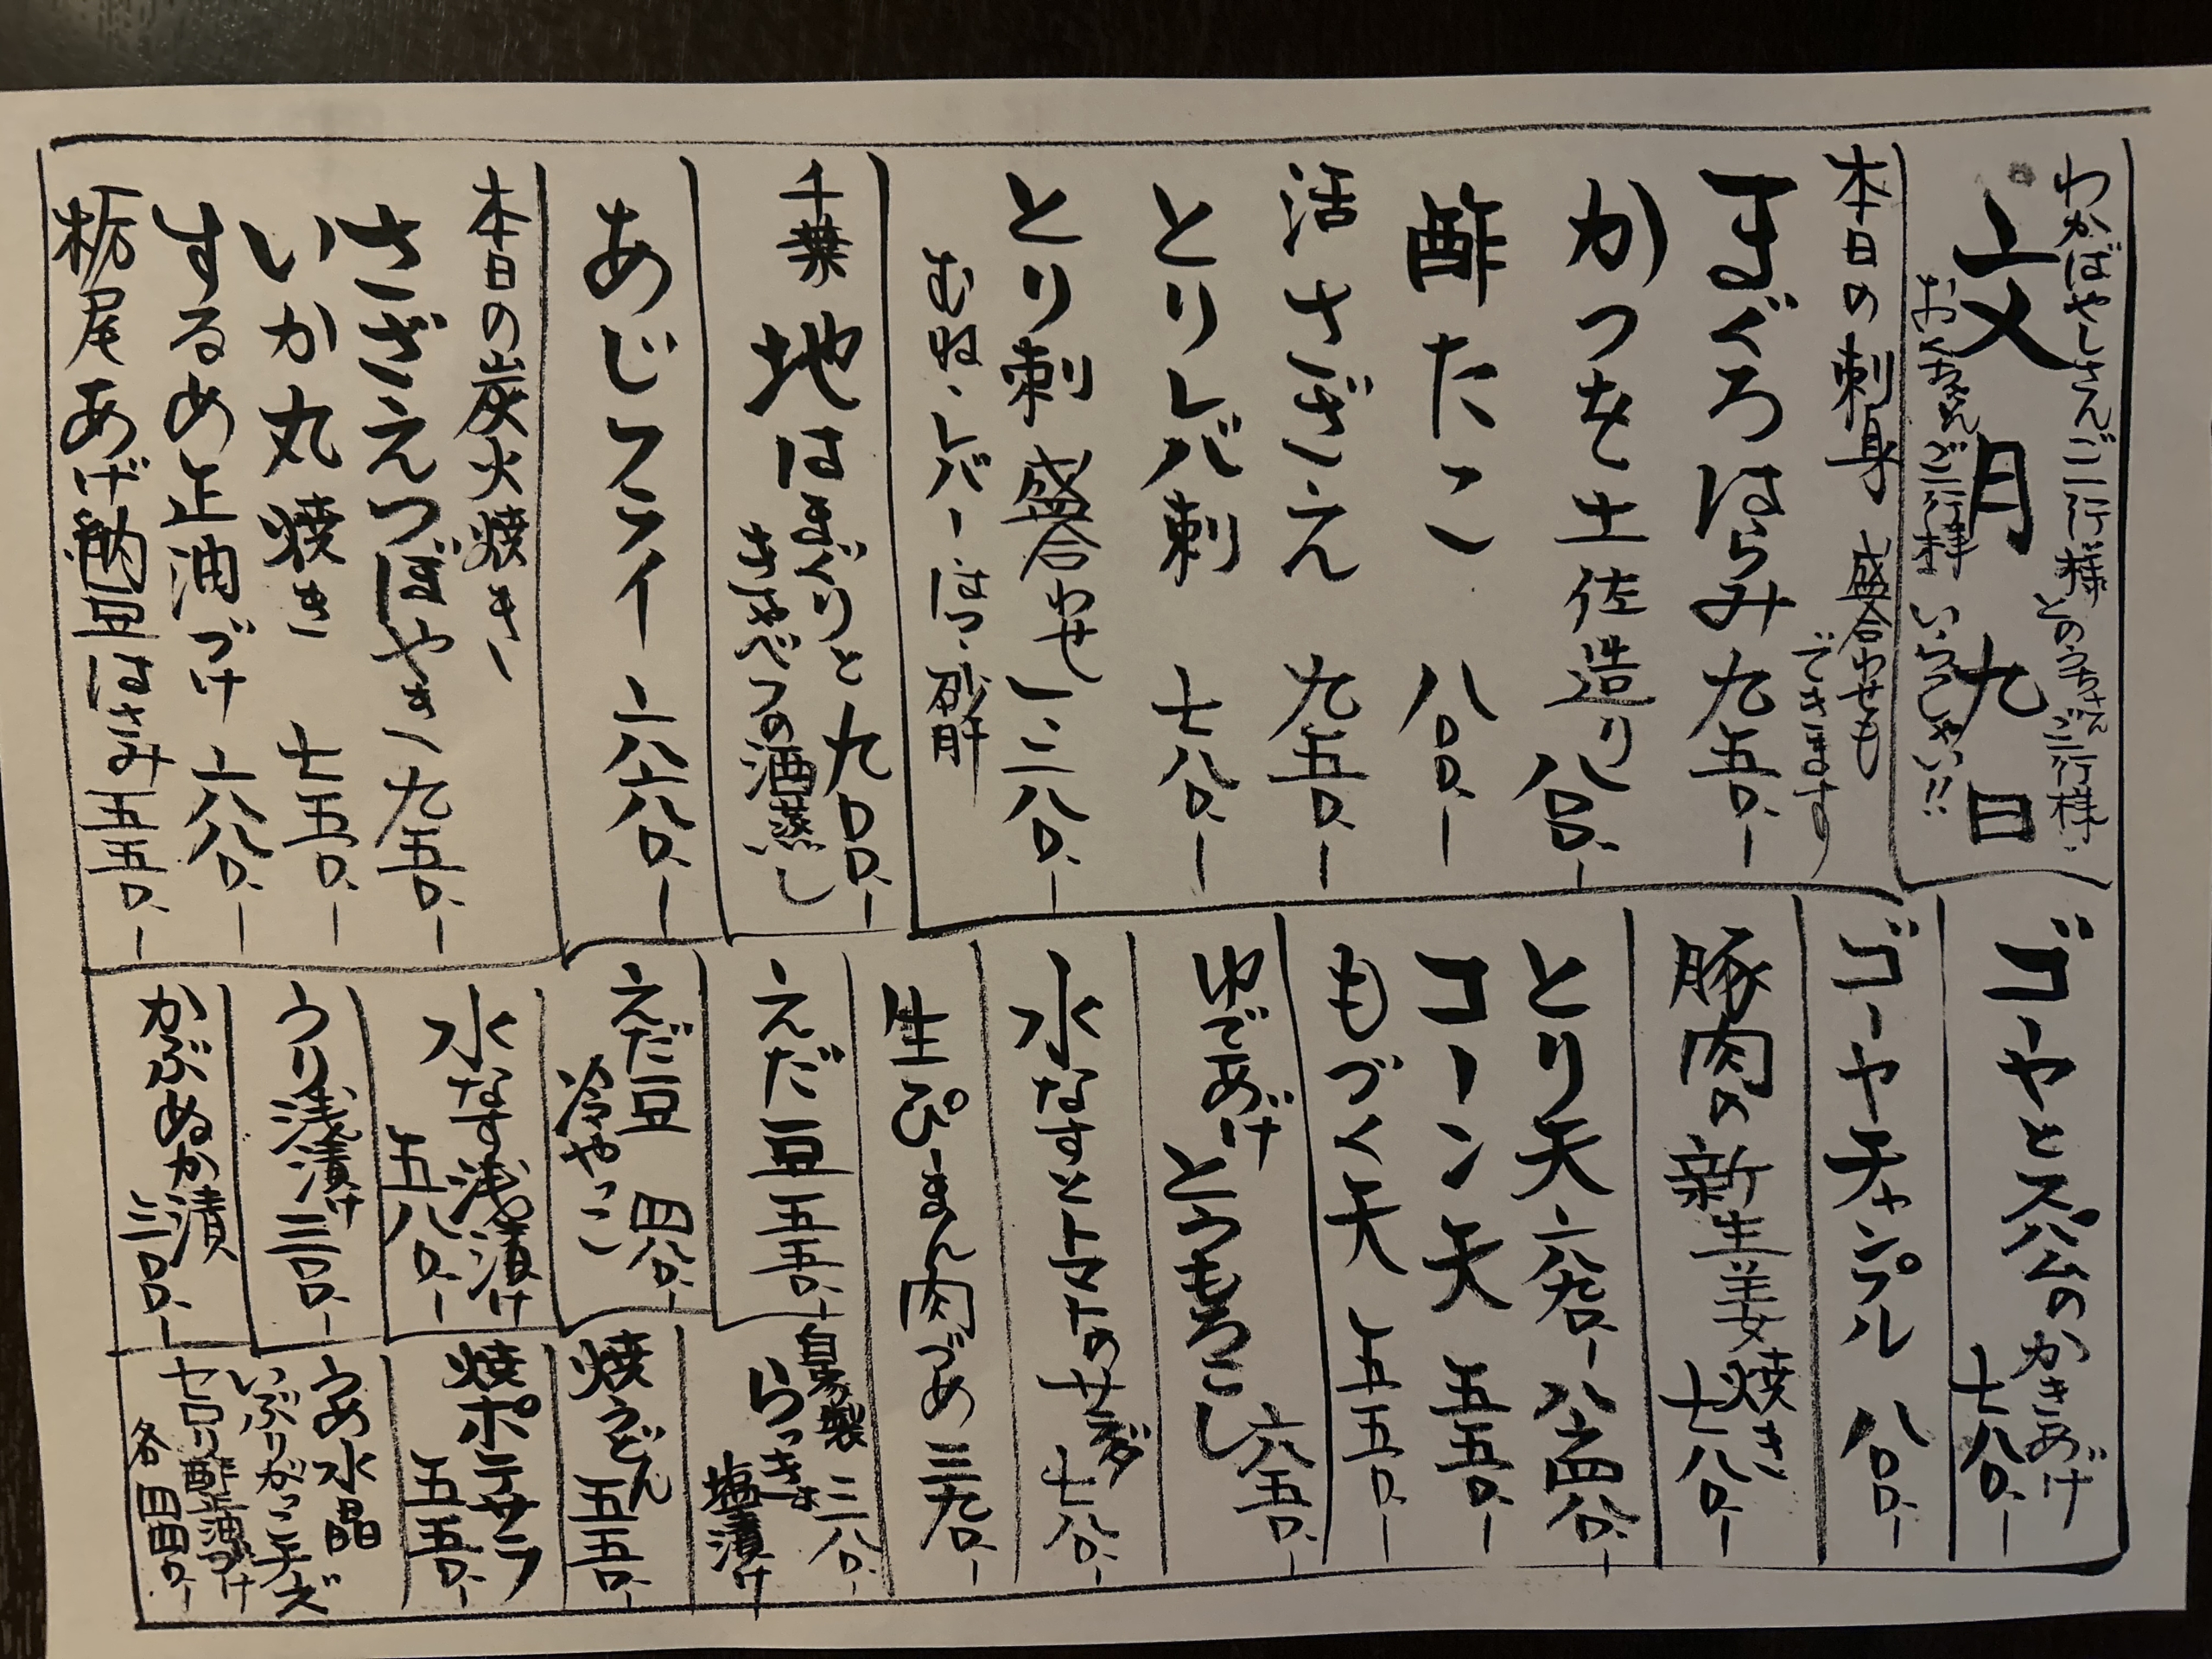 わかばやしさんご一行様
とのうちさんご一行様
文月九日
ご一行様 いらっしゃい!!
本日の刺身 盛合わせも
できます
まぐろはらみ 九五〇.ー
かつを土佐造り 八〇〇.ー
酢たこ 八〇〇.ー
活さざえ 九五〇.ー
とりレバ刺 七八〇.ー
とり刺盛合わせ 一、二八〇.ー
むね、レバー、はつ、砂肝
千葉 地はまぐりと 九〇〇.ー
きゃべつの酒蒸し
あじフライ 六八〇.ー
本日の炭火焼きー
さざえつぼやき 九五〇.ー
いか丸焼き 七五〇.ー
するめ正油づけ 六八〇.ー
栃尾あげ納豆はさみ 五五〇.ー
ゴーヤとスパムのかきあげ
七八〇.ー
ゴーヤチャンプル 八〇〇.ー
豚肉の新生姜焼き
七八〇.ー
とり天
コーン天 五五〇.ー
もづく天 五五〇.ー
ゆであげ
とうもろこし 六五〇.ー
水なすとトマトのサラダ 七八〇.ー
生ぴーまん肉づめ 三九〇.ー
えだ豆 五五〇.ー
自家製
らっきょ 三八〇.ー
塩漬け
えだ豆
冷やっこ 四八〇.ー
焼うどん 五五〇.ー
水なす浅漬け
五八〇.ー
焼ポテサラ
五五〇.ー
うり浅漬け 三〇〇.ー
かぶぬか漬
三〇〇.ー
うめ水晶
いぶりがっこチーズ
セロリ酢正油づけ
各四四〇.ー